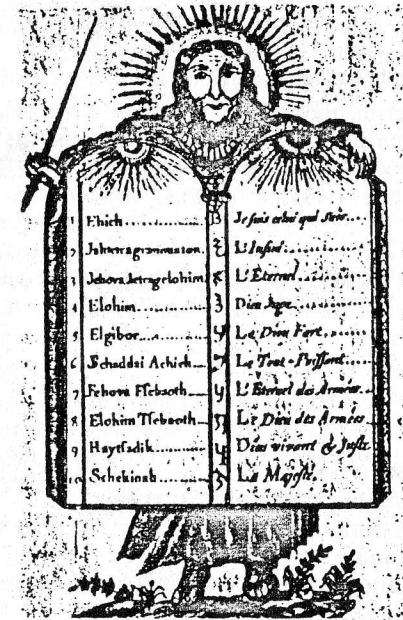 1 Ehieh
Je suis celui qui suis
2
L'Infini
3 Jehova Jetragelohim
L'Éternel
4 Elohim
Dieu Juge
5 Elgibor
Le Dieu Fort
6 Achieh
Le Tout-Puissant
7 Jehova Tsebaoth
L'Éternel des Armées
8 Elohim Tsebaoth
Le Dieu des Armées
9 Haytsadik
Dieu vivant & Juste
10 Schekinah
La Majesté.